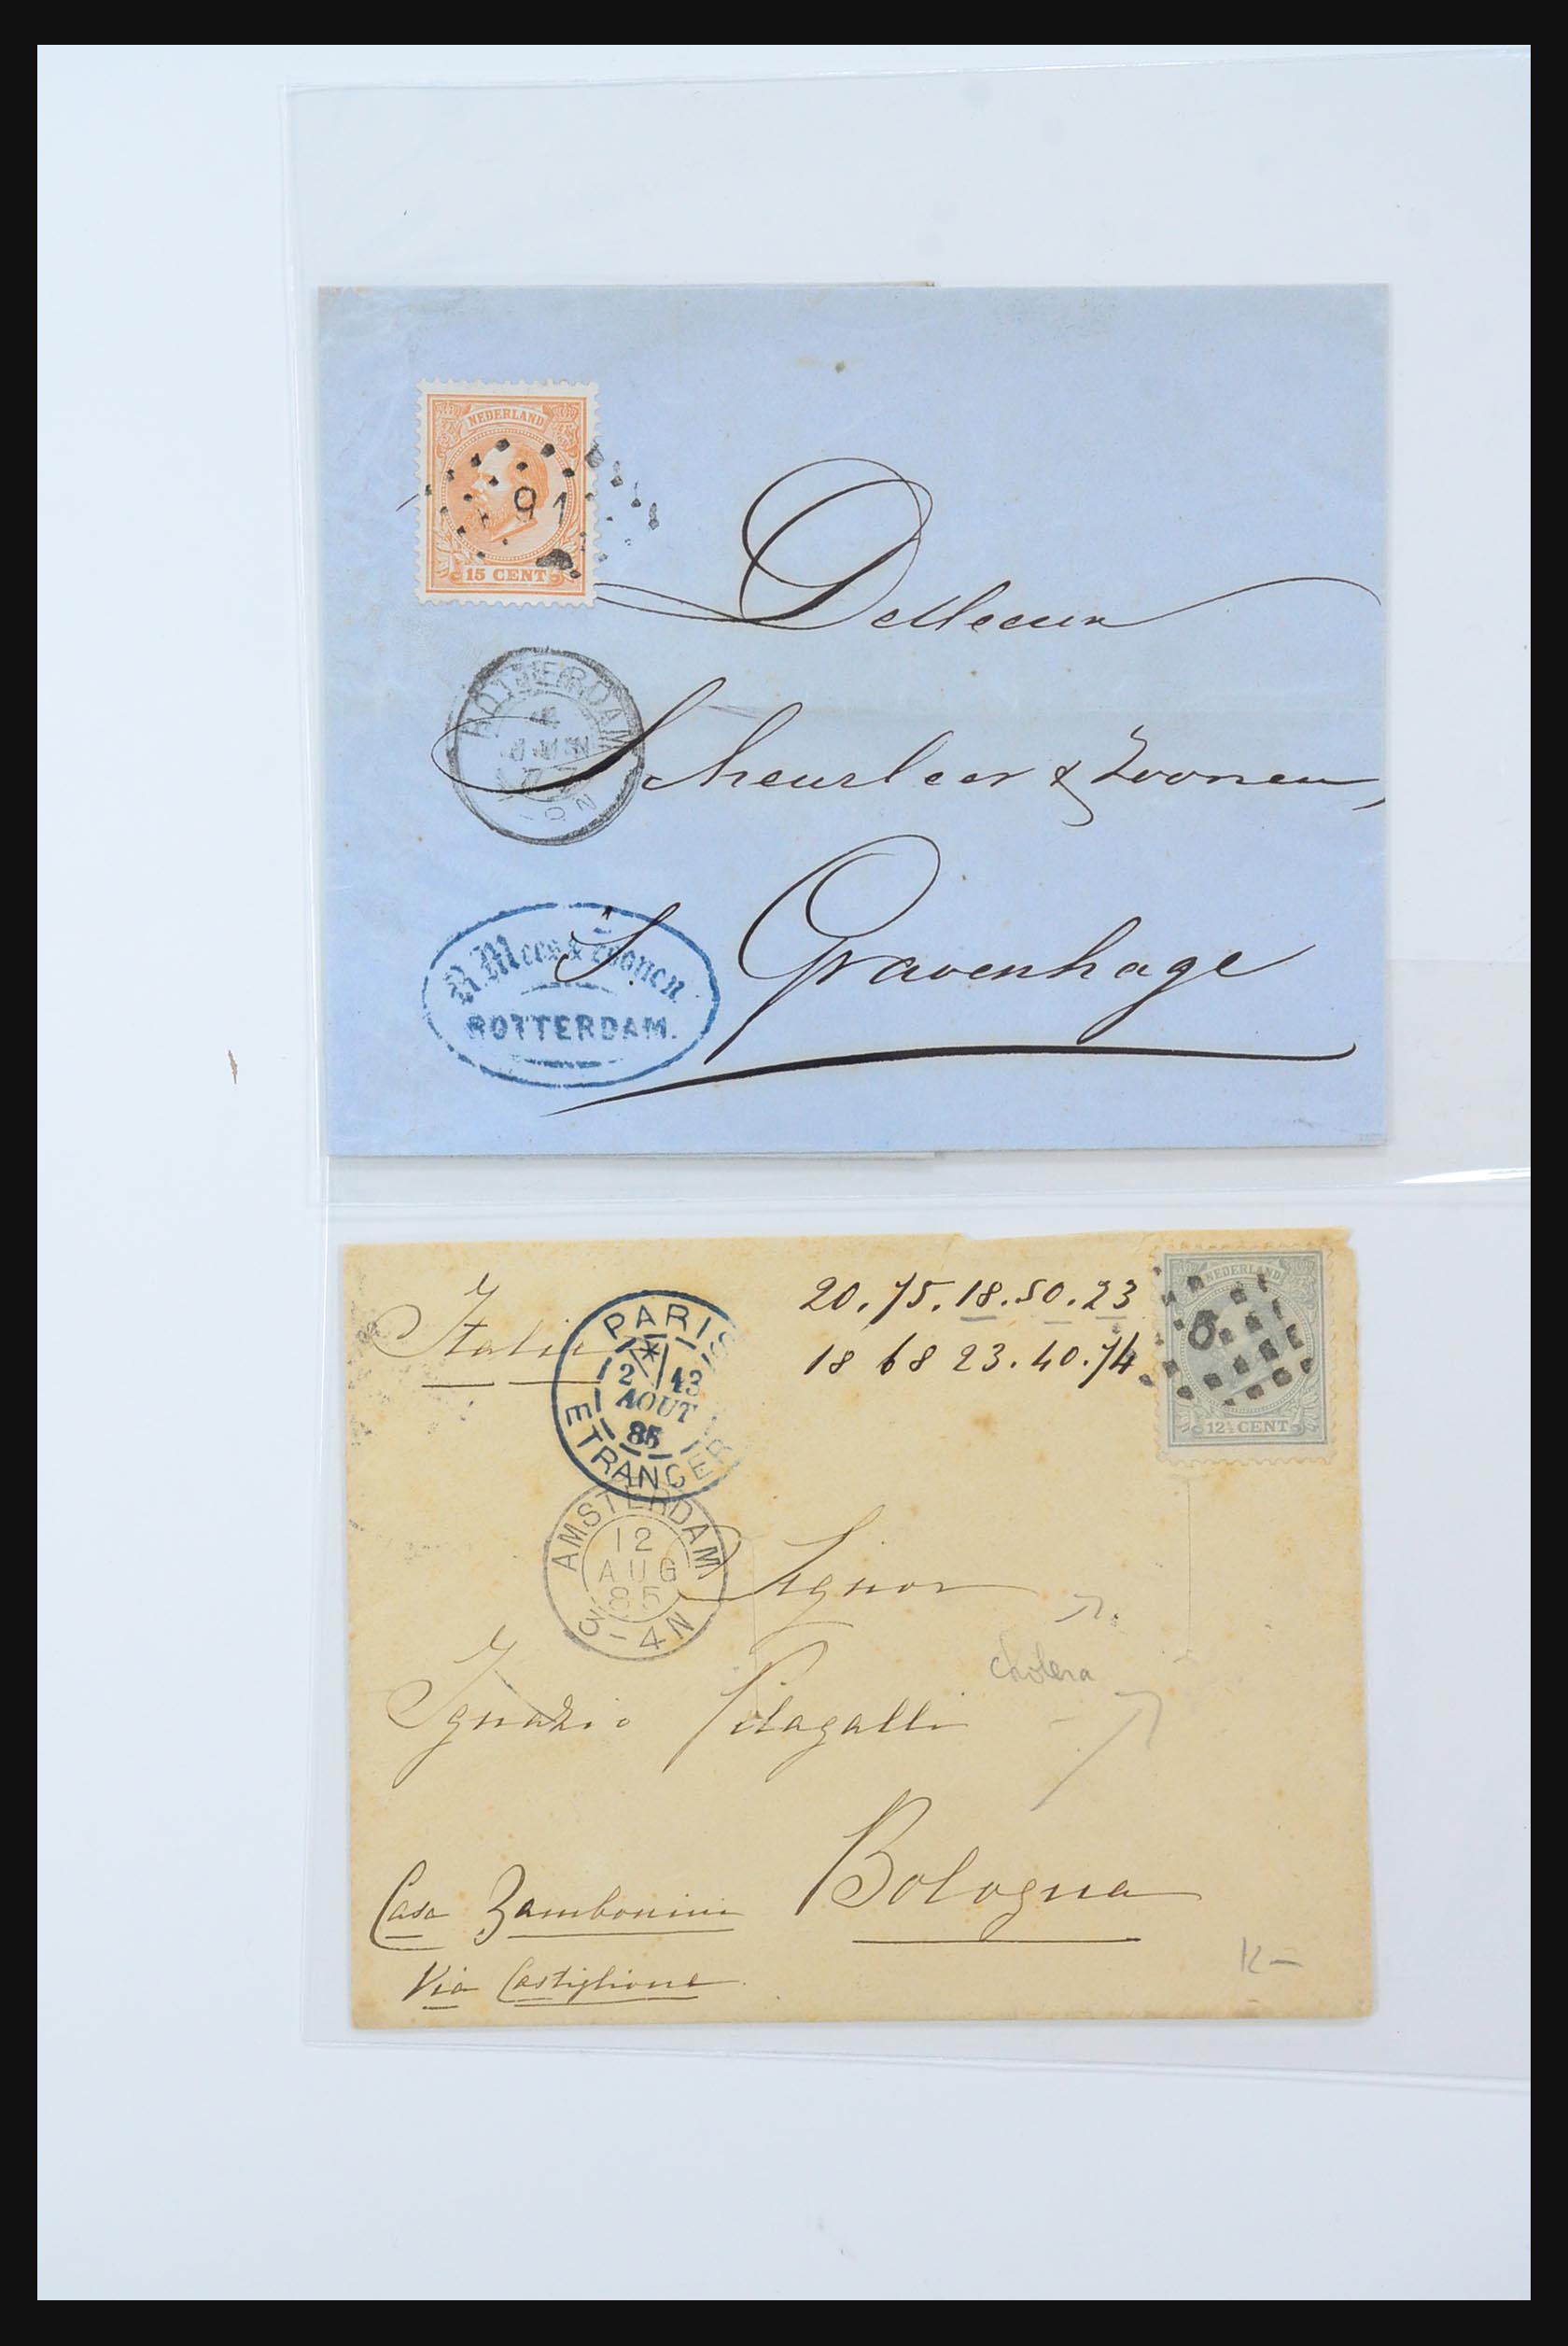 NEDERLAND
91
15 CENT
De Heeren
Scheurleer & Zoonen,
ROTTERDAM
4
JUN
'S Gravenhage
R. Mees & Zoonen
ROTTERDAM.
Italie
20. 75. 18. 50. 23
18 68 23. 40. 74
NEDERLAND
12½ CENT
PARIS
2 13
AOUT
85
ETRANGER
AMSTERDAM
12
AUG
85
3-4N
Signor
cholera
Ignazio Pilagalli
Bologna
Casa Zambonini
Via Castiglione